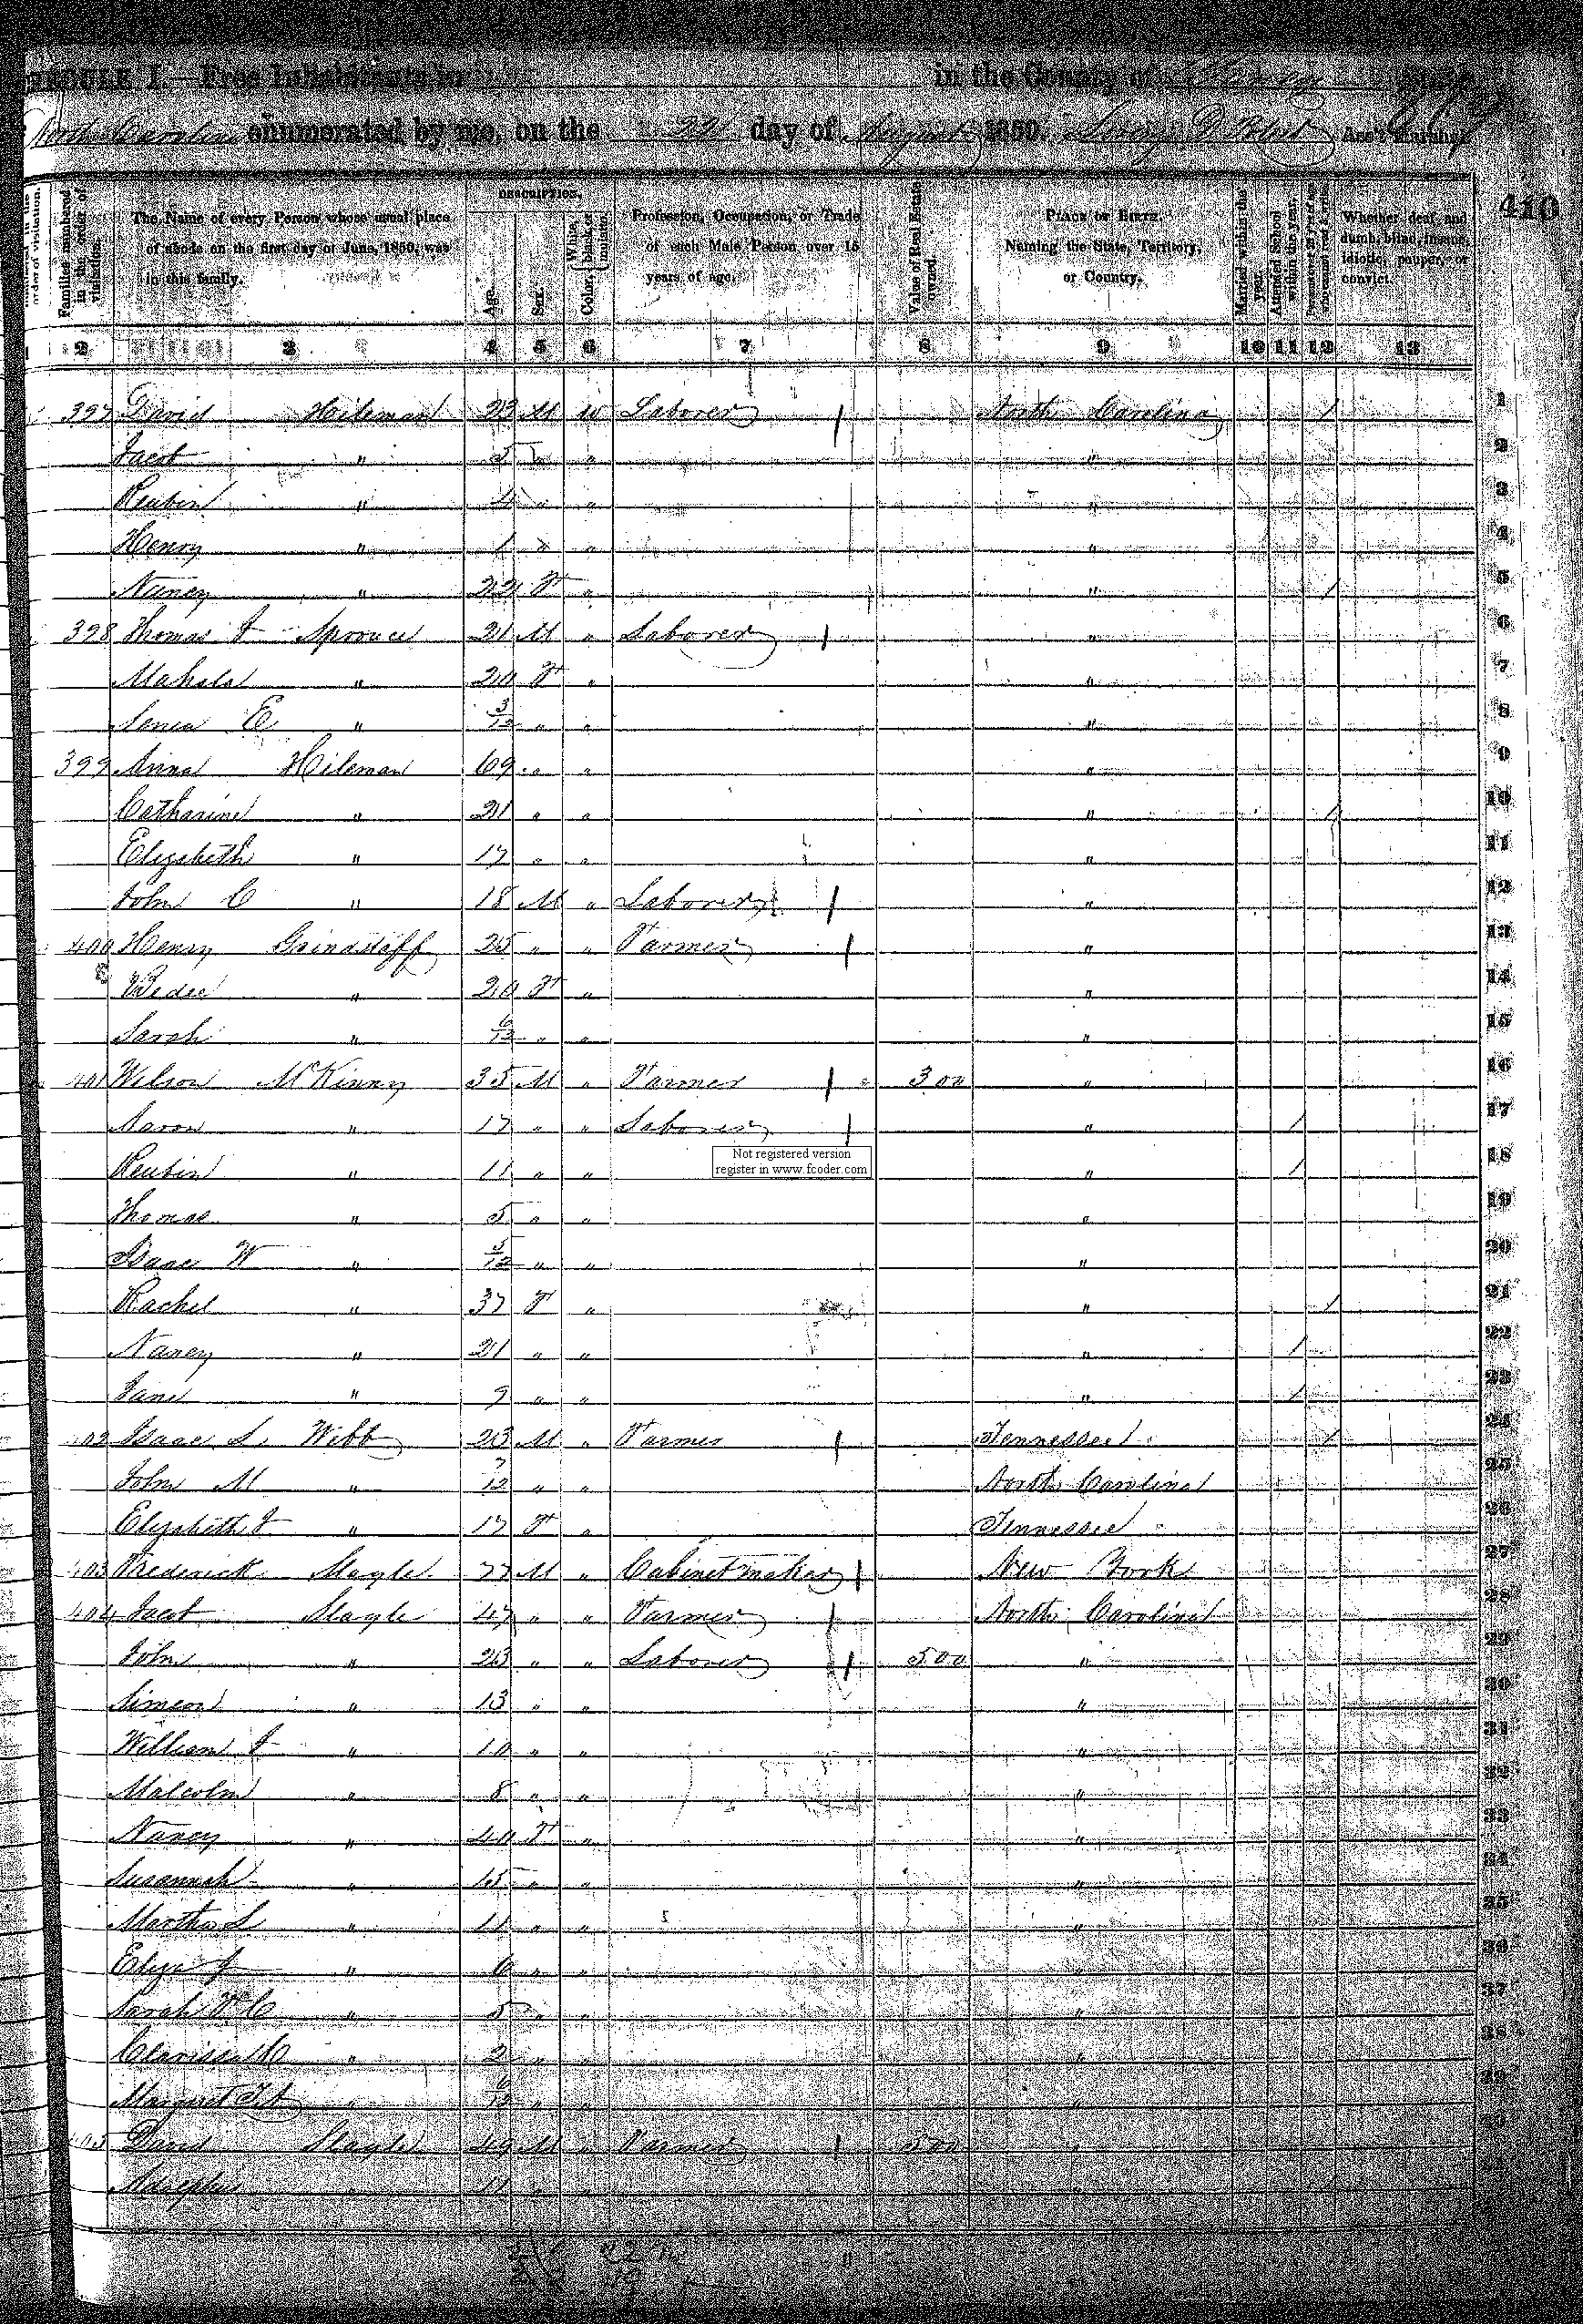 SCHEDULE I.—Free Inhabitants in in the County of
North Carolina enumerated by me, on the 22 day of August 1850. Ass't Marshal.
410
order of visitation.
Families numbered in the order of visitation.
The Name of every Person whose usual place of abode on the first day of June, 1850, was in this family.
DESCRIPTION.
Age.
Sex.
Color, White, black, or mulatto.
Profession, Occupation, or Trade of each Male Person over 15 years of age.
Value of Real Estate owned.
PLACE OF BIRTH. Naming the State, Territory, or Country.
Married within the year.
Attended School within the year.
Whether deaf and dumb, blind, insane, idiotic, pauper, or convict.
2 3 4 5 6 7 8 9 10 11 12 13
397 David Hileman 23 M W Laborer North Carolina / 1
Jacob " 5 " " " 2
Reubin " 4 " " " 3
Henry " 1 " " " 4
Nancy " 22 F " " / 5
398 Thomas J Sprouce 21 M " Laborer " 6
Mahala " 20 F " " 7
E " 3/12 " " " 8
399 Anna Hileman 69 " " " 9
Catharine " 21 " " " / 10
Elizabeth " 17 " " " 11
John C " 18 M " Laborer " 12
400 Henry Grindstaff 25 " " Farmer " 13
" 20 F " " 14
Sarah " 6/12 " " " 15
401 Wilson McKinny 35 M " Farmer 300 " 16
Aaron " 17 " " Laborer " / 17
Reubin " 11 " " " / 18
Not registered version
register in www.fcoder.com
Thomas " 5 " " " 19
Isaac W " 5/12 " " " 20
Rachel " 37 F " " / 21
Nancy " 21 " " " / 22
Jane " 9 " " " / 23
402 Isaac L Webb 23 M " Farmer Tennessee / 24
John M " 7/12 " " North Carolina 25
Elizabeth J " 17 F " Tennessee 26
403 Frederick Slagle 77 M " Cabinet maker New York 27
404 Jacob Slagle 47 " " Farmer North Carolina 28
John " 23 " " Laborer 500 " 29
Simeon " 13 " " " 30
William J " 10 " " " 31
Malcolm " 8 " " " 32
Nancy " 40 F " " 33
Susannah " 15 " " " 34
Martha L " 11 " " " 35
Eliza J " 6 " " " 36
Sarah " 5 " " " 37
Clarissa " 2 " " " 38
Margaret " 6/12 " " " 39
405 David Slagle 49 M " Farmer 500 "
" 11 " " "